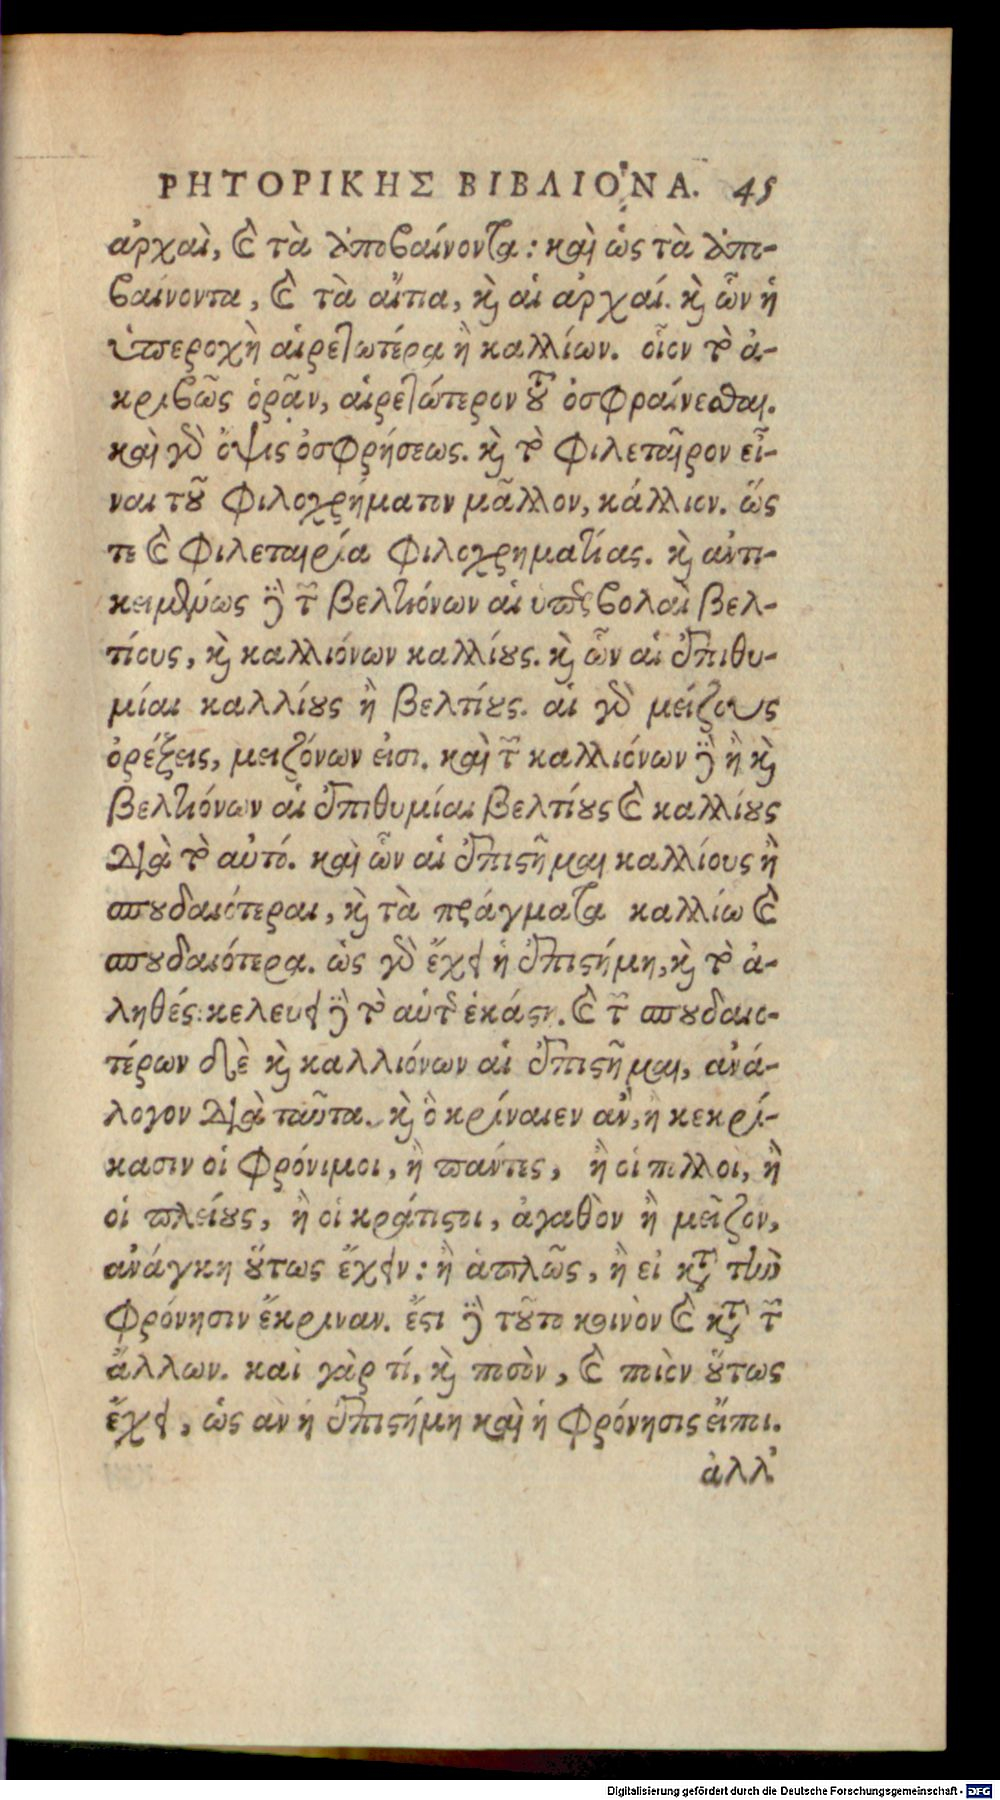 ΡΗΤΟΡΙΚΗΣ ΒΙΒΛΙΟΝ Α. 45
ἀρχαὶ, καὶ τὰ ἀποβαίνοντα: καὶ ὡς τὰ ἀπο-
βαίνοντα, καὶ τὰ αἴτια, καὶ αἱ ἀρχαί. καὶ ὧν ἡ
ὑπεροχὴ αἱρετωτέρα ἢ καλλίων. οἷον τὸ ἀ-
κριβῶς ὁρᾶν, αἱρετώτερον τοῦ ὀσφραίνεσθαι.
καὶ γὰρ ὄψις ὀσφρήσεως. καὶ τὸ φιλεταῖρον εἶ-
ναι τοῦ φιλοχρήματον μᾶλλον, κάλλιον. ὥς
τε καὶ φιλεταιρία φιλοχρηματίας. καὶ ἀντι-
κειμένως δὲ τῶν βελτιόνων αἱ ὑπερβολαὶ βελ-
τίους, καὶ καλλιόνων καλλίους. καὶ ὧν αἱ ἐπιθυ-
μίαι καλλίους ἢ βελτίους. αἱ γὰρ μείζους
ὀρέξεις, μειζόνων εἰσι. καὶ τῶν καλλιόνων δὲ ἢ καὶ
βελτιόνων αἱ ἐπιθυμίαι βελτίους καὶ καλλίους
διὰ τὸ αὐτό. καὶ ὧν αἱ ἐπιστῆμαι καλλίους ἢ
σπουδαιότεραι, καὶ τὰ πράγματα καλλίω καὶ
σπουδαιότερα. ὡς γὰρ ἔχει ἡ ἐπιστήμη, καὶ τὸ ἀ-
ληθές: κελεύει δὲ τὸ αὑτῆς ἑκάστη. καὶ τῶν σπουδαιο-
τέρων δὲ καὶ καλλιόνων αἱ ἐπιστῆμαι, ἀνά-
λογον διὰ ταῦτα. καὶ ὃ κρίναιεν ἂν, ἢ κεκρί-
κασιν οἱ φρόνιμοι, ἢ πάντες, ἢ οἱ πολλοὶ, ἢ
οἱ πλείους, ἢ οἱ κράτιστοι, ἀγαθὸν ἢ μεῖζον,
ἀνάγκη οὕτως ἔχειν: ἢ ἁπλῶς, ἢ εἰ κατὰ τὴν
φρόνησιν ἔκριναν. ἔστι δὲ τοῦτο κοινὸν καὶ κατὰ τῶν
ἄλλων. καὶ γὰρ τί, καὶ ποσὸν, καὶ ποιὸν οὕτως
ἔχει, ὡς ἂν ἡ ἐπιστήμη καὶ ἡ φρόνησις εἴποι.
ἀλλ'
Digitalisierung gefördert durch die Deutsche Forschungsgemeinschaft - DFG